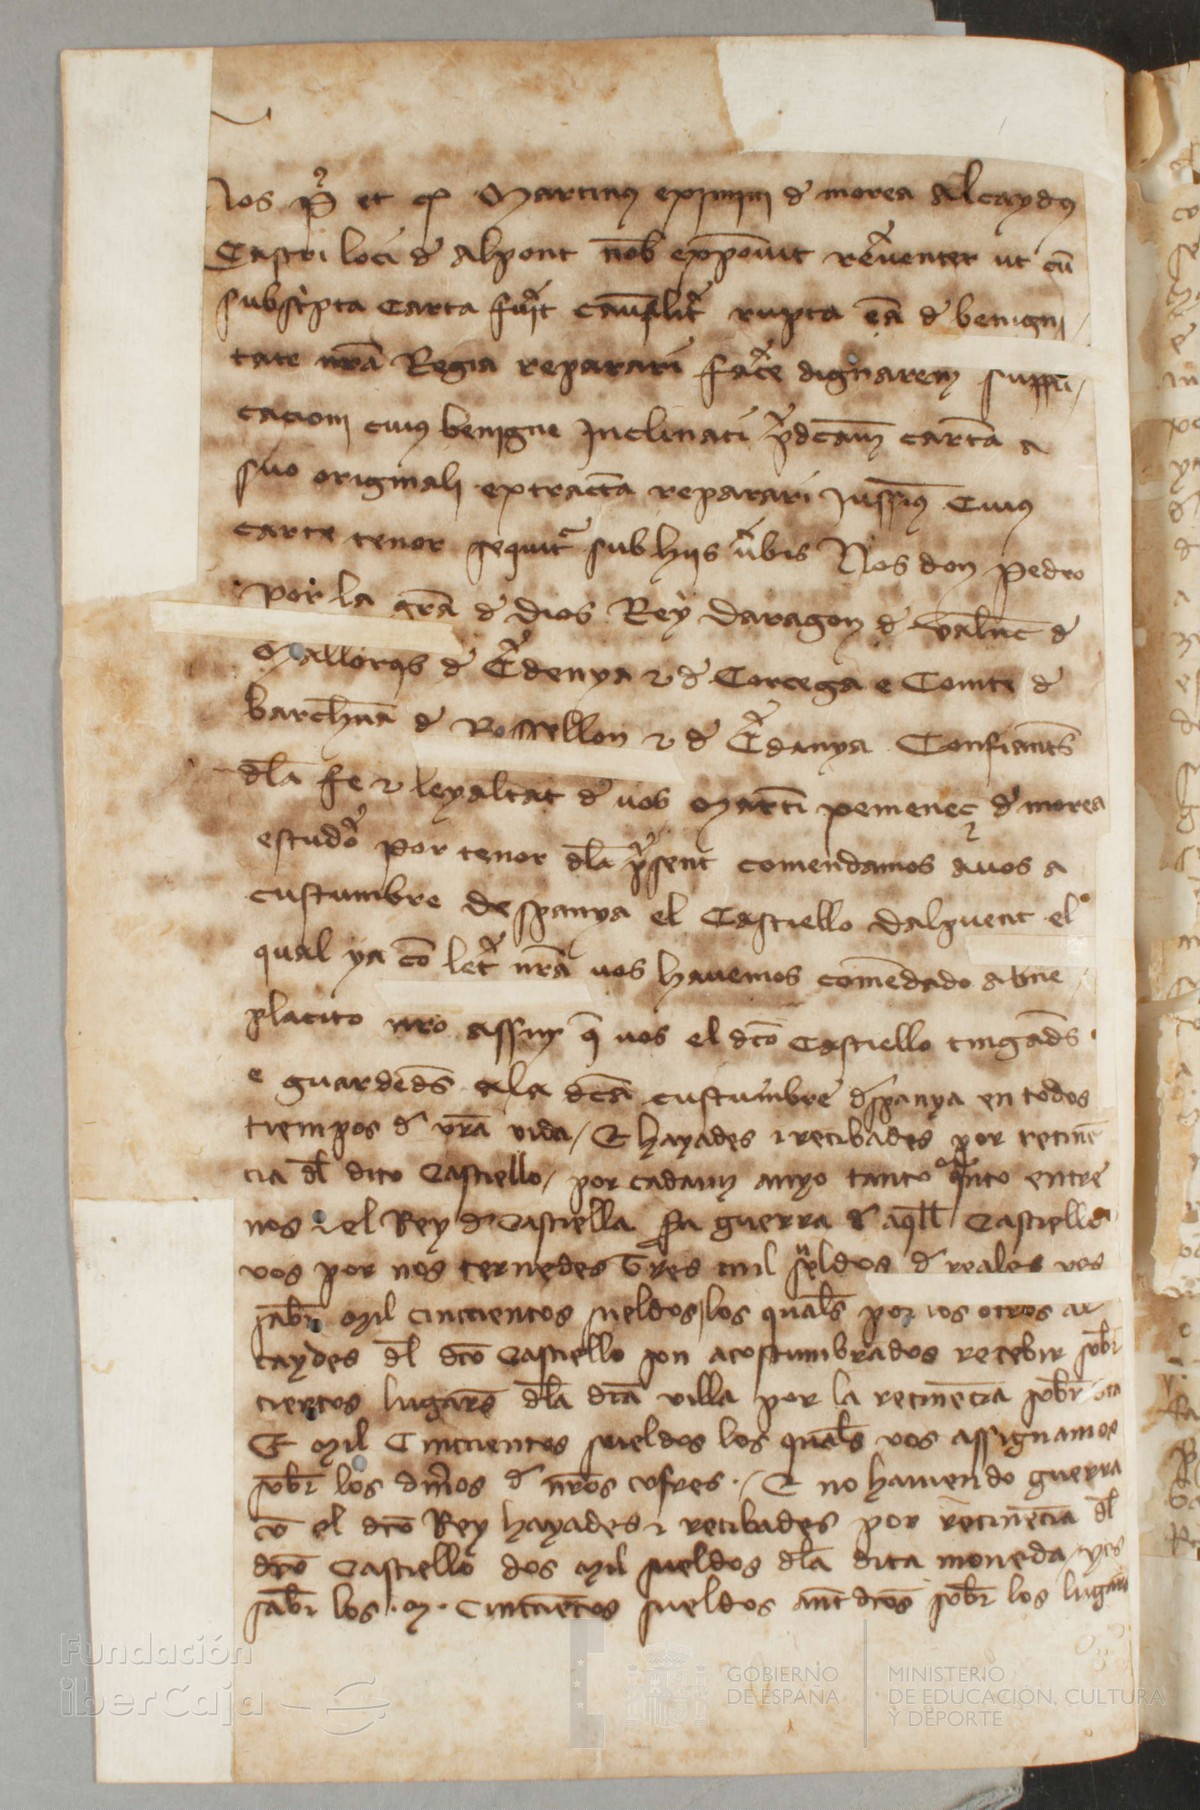 Nos P. et q Martinus eximini d morea Alcaydus
Castri loci d Alpont nob exposuit reverenter ut cu
subscripta carta fuit casualit rupta ea d benigni
tate nra Regia reparari facere dignarem suppli
cacioni cuius benigne Inclinati pdcam carta a
suo originali extracta reparari Jussim Cuius
carte tenor sequit sub hiis vbis Nos don Pedro
por la gra d dios Rey Daragon d valenc d
Mallorqs d Cdenya e d Corcega e Comte d
barchna d Rossellon e d Cdanya Confiants
dla fe e leyaltat d uos Marti xemenec d morea
escudo por tenor dla psent comendamos auos a
custumbre despanya el Castiello dalpuent el
qual ya co letr nra uos havemos comendado a bne
placito nro assin q uos el dco Castiello tingads
e guardeds ala dca custumbre dspanya en todos
tiempos d vra vida / E hayades e recibades por retine
cia dl dito Castiello / por cadaun anyo tanto qnto entre
nos e el Rey d Castiella sea guerra e aqll Castiello
vos por nos ternedes Tres mil sueldos d reales yes
sabr Mil cincientos sueldos los quals por los otros al
caydes dl dco Castiello son acostumbrados recebir sobr
ciertos lugars dla dca villa por la retinecia sobr dta
E Mil Cincientos sueldos los quals vos assignamos
sobr los dnros d nros cofres / E no haviendo guerra
co el dco Rey hayades e recibades por retinecia dl
dco Castiello dos Mil sueldos dla dita moneda / yes
sabr los M Cincientos sueldos ant dcos sobr los lugars
Fundación
iberCaja
GOBIERNO
DE ESPAÑA
MINISTERIO
DE EDUCACIÓN, CULTURA
Y DEPORTE